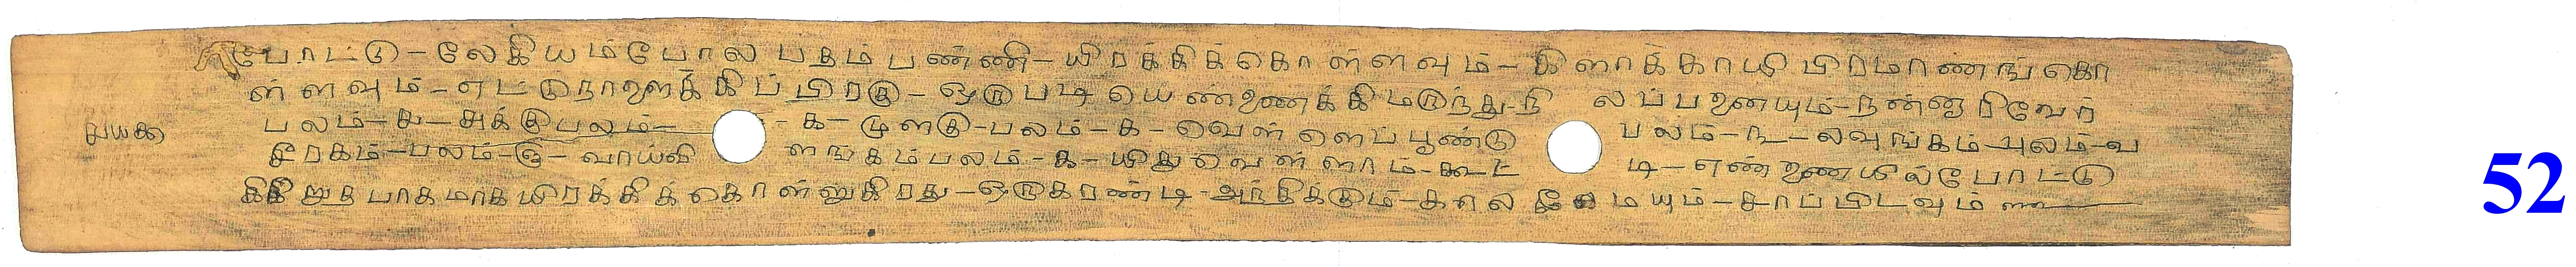 போட்டு - லேகியம்போல பதம் பண்ணி - யிரக்கிக்கொள்ளவும் - கிளாக்காயி பிரமாணங்கொ
ள்ளவும் - எட்டுநாளைக்கிப் பிரகு - ஒருபடி யெண்ணைக்கிமருந்து - நி லப்பனையும் - நன்னாரிவேர்
பலம் - சு - சுக்குபலம் - க - மூளகு - பலம் - க - வெள்ளைப்பூண்டு பலம் - ந - லவுங்கம் - பலம் - வ
சீரகம் - பலம் - ரு - வாய்வி ளங்கம்பலம் - க - யிதுவெள்ளாம் - கூட் டி - எண்ணையில்போட்டு
பாகமாக யிரக்கிக்கொள்ளுகிரது - ஒருகரண்டி - அந்திக்கும் - காலமேயும் - சாப்பிடவும்
52